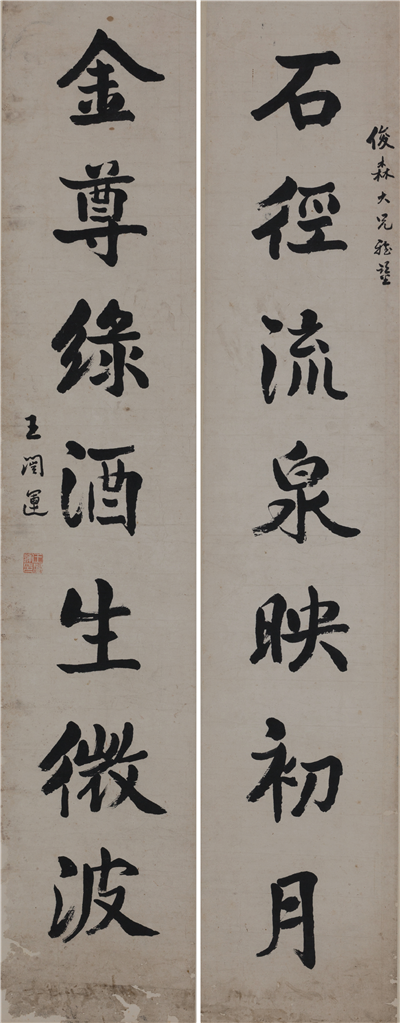 俊森大兄雅鑒
石徑流泉映初月
金尊綠酒生微波
王闓運